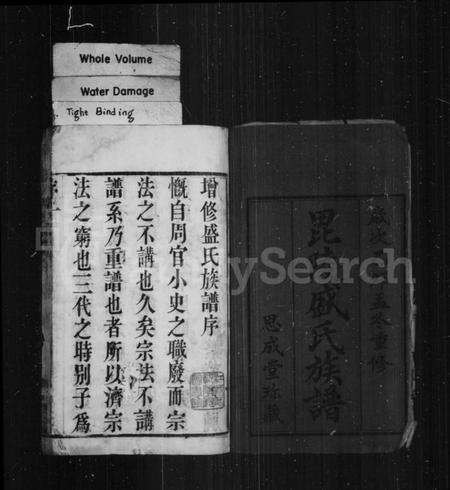 Whole Volume
Water Damage
Tight Binding
增修盛氏族譜序
慨自周官小史之職廢而宗
法之不講也久矣宗法不講
譜系乃重譜也者所以濟宗
法之窮也三代之時別子爲
重修
毘陵盛氏族譜
思成堂珍藏
FamilySearch